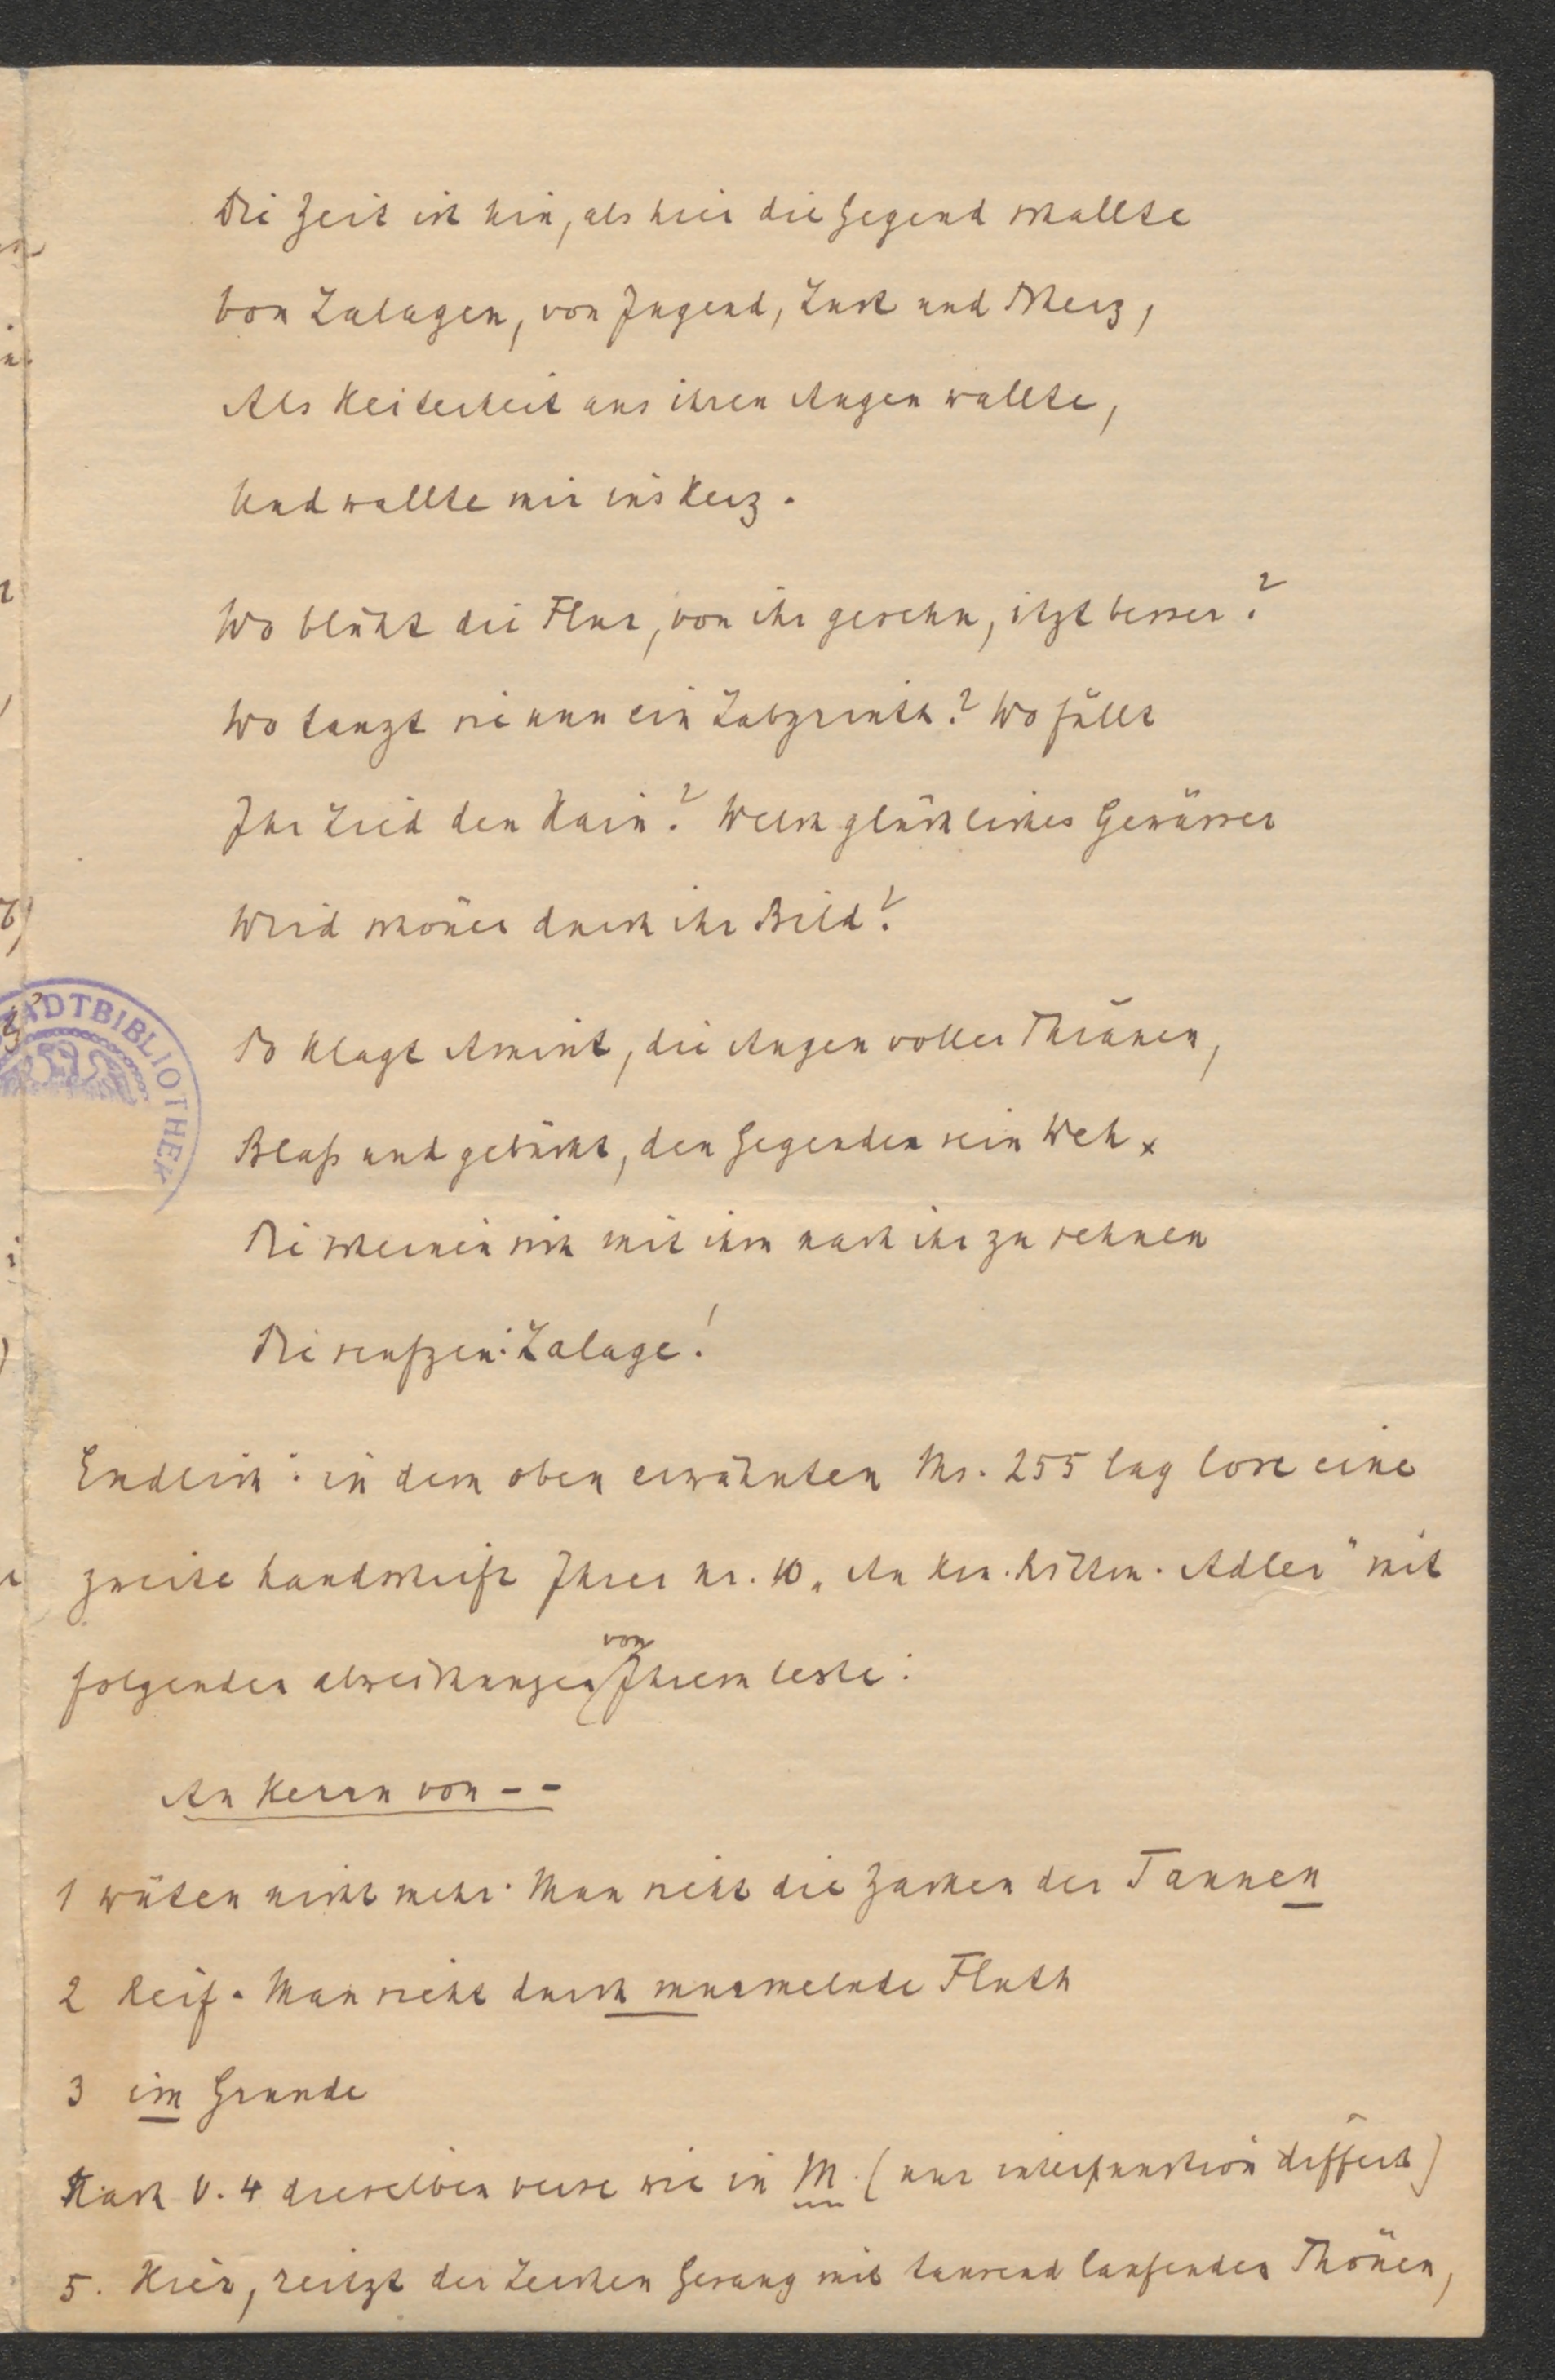 Die Zeit ist hin, als hier die Gegend schallte
Von Lalagen, von Jugend, Lust und Scherz,
Als Heiterkeit aus ihren Augen wallte,
Und wallte mir in's Herz.
Wo blüht die Flur, von ihr gesehn, itzt besser?
Wo tanzt sie nun ein Labyrinth? Wo füllt
Ihr Lied den Hain? Welch glückliches Gewässer
Wird schöner durch ihr Bild?
So klagt Amint, die Augen voller Thränen,
Blaß und gebückt, den Gegenden sein Weh
Sie scheinen sich mit ihm nach ihr zu sehnen
Sie seufzen: Lalage!
Endlich: in dem oben erwähnten Ms. 255 lag lose eine
zweite handschrift Ihrer nr. 10 „An Hrn. Rittm. Adler" mit
folgenden abweichungen von Ihrem texte:
An Herrn von --
1 wüten nicht mehr. Man sieht die Zacken der Tannen
2 Reif. Man sieht durch murmelnde Fluth
3 im Grunde
Nach V. 4 dieselben verse wie in M. (nur interpunktion differt)
5. Hier, reitzt der Lerchen Gesang mit tausend laufenden Thönen,
STADTBIBLIOTHEK